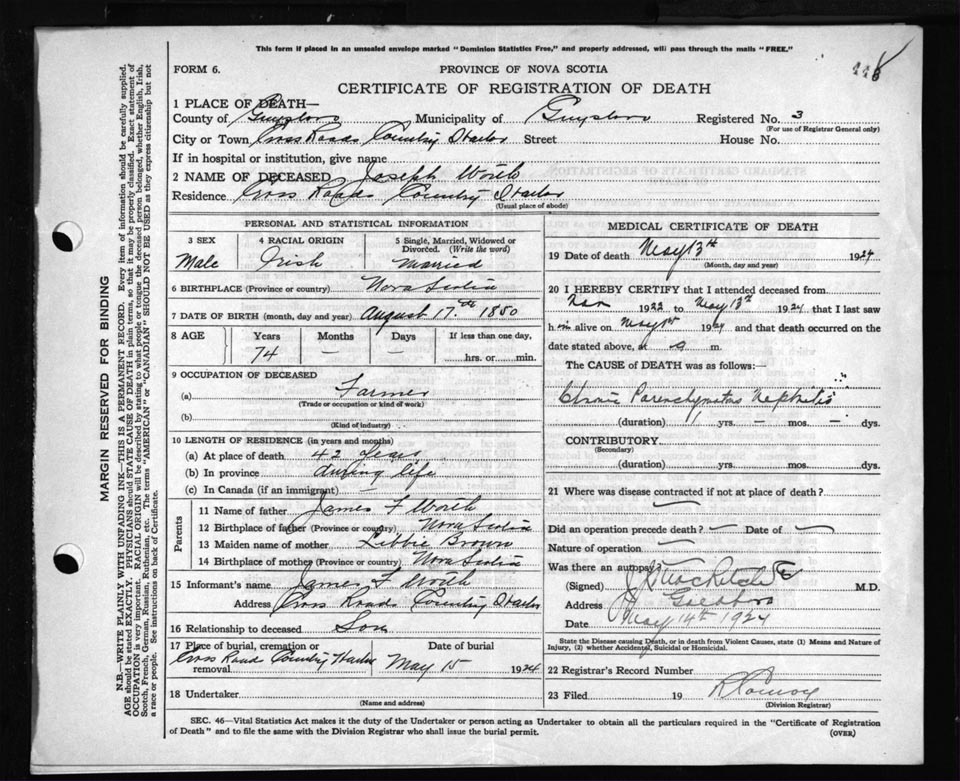 This form if placed in an unsealed envelope marked "Dominion Statistics Free," and properly addressed, will pass through the mails "FREE."
FORM 6.
PROVINCE OF NOVA SCOTIA
CERTIFICATE OF REGISTRATION OF DEATH
1 PLACE OF DEATH—
County of Guysboro Municipality of Guysboro Registered No. 3
(For use of Registrar General only)
City or Town Cross Roads Country Harbor Street House No.
If in hospital or institution, give name
2 NAME OF DECEASED Joseph Worth
Residence Cross Roads Country Harbor
(Usual place of abode)
PERSONAL AND STATISTICAL INFORMATION
3 SEX 4 RACIAL ORIGIN 5 Single, Married, Widowed or Divorced. (Write the word)
Male Irish Married
6 BIRTHPLACE (Province or country) Nova Scotia
7 DATE OF BIRTH (month, day and year) August 17th 1850
8 AGE Years Months Days If less than one day,
74 — — hrs. or min.
9 OCCUPATION OF DECEASED
(a) Farmer
(Trade or occupation or kind of work)
(b)
(Kind of industry)
10 LENGTH OF RESIDENCE (in years and months)
(a) At place of death 42 years
(b) In province during life
(c) In Canada (if an immigrant) —
Parents
11 Name of father James F Worth
12 Birthplace of father (Province or country) Nova Scotia
13 Maiden name of mother Libbie Brown
14 Birthplace of mother (Province or country) Nova Scotia
15 Informant's name James F Worth
Address Cross Roads Country Harbor
16 Relationship to deceased Son
17 Place of burial, cremation or removal Date of burial
Cross Road Country Harbor May 15 1924
18 Undertaker
(Name and address)
MEDICAL CERTIFICATE OF DEATH
19 Date of death May 13th 1924
(Month, day and year)
20 I HEREBY CERTIFY that I attended deceased from
1922 to May 13th 1924 that I last saw
him alive on May 1924 and that death occurred on the
date stated above, at a m.
The CAUSE OF DEATH was as follows:—
Chronic Parenchymatous Nephritis
(duration) 11 yrs. — mos. — dys.
CONTRIBUTORY
(Secondary)
(duration) yrs. mos. dys.
21 Where was disease contracted if not at place of death?
Did an operation precede death? — Date of —
Nature of operation —
Was there an autopsy?
(Signed) M.D.
Address Goldboro
Date May 14th 1924
State the Disease causing Death, or in death from Violent Causes, state (1) Means and Nature of Injury, (2) whether Accidental, Suicidal or Homicidal.
22 Registrar's Record Number
23 Filed 19
(Division Registrar)
SEC. 46—Vital Statistics Act makes it the duty of the Undertaker or person acting as Undertaker to obtain all the particulars required in the "Certificate of Registration
of Death" and to file the same with the Division Registrar who shall issue the burial permit. (OVER)
MARGIN RESERVED FOR BINDING
N.B.—WRITE PLAINLY WITH UNFADING INK—THIS IS A PERMANENT RECORD. Every item of information should be carefully supplied.
AGE should be stated EXACTLY. PHYSICIANS should STATE CAUSE OF DEATH in plain terms, so that it may be properly classified. Exact statement of
OCCUPATION is very important. RACIAL ORIGIN will be described by stating to what people or tongue the deceased person belonged, whether English, Irish,
Scotch, French, German, Russian, Ruthenian, etc. The terms "AMERICAN" or "CANADIAN" SHOULD NOT BE USED as they express citizenship but not
a race or people. See instructions on back of Certificate.